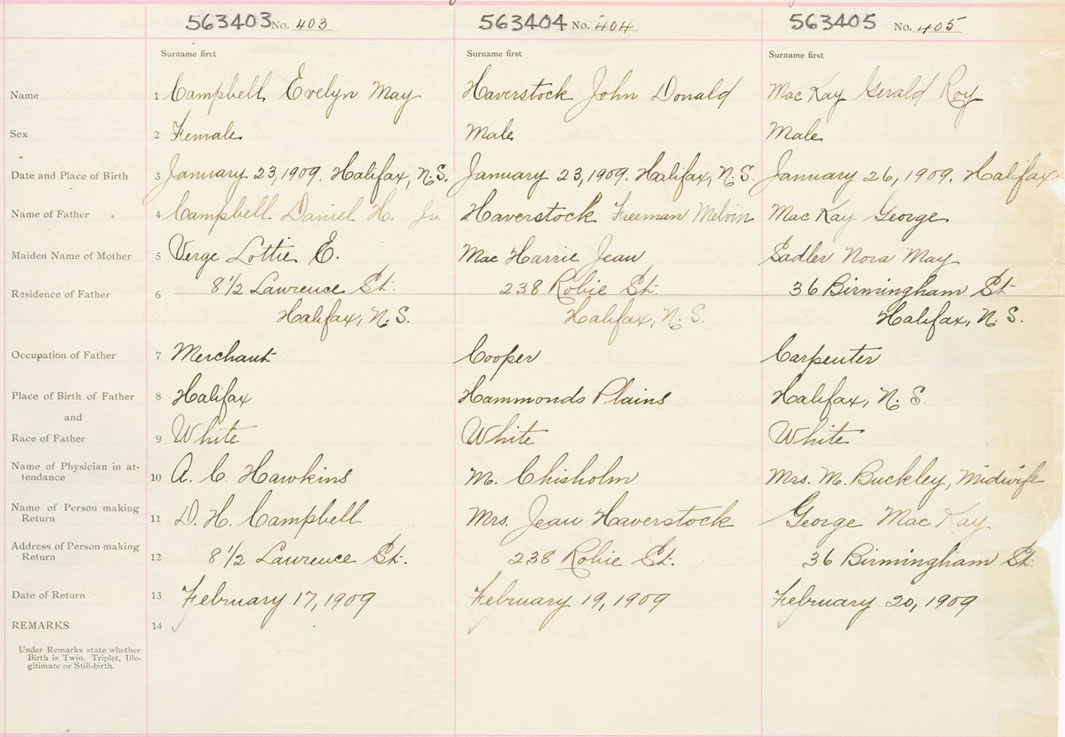 563403 No. 403 563404 No. 404 563405 No. 405
Surname first Surname first Surname first
Name 1 Campbell Evelyn May Haverstock John Donald Mac Kay Gerald Roy
Sex 2 Female Male Male
Date and Place of Birth 3 January 23, 1909. Halifax, N.S. January 23, 1909. Halifax, N.S. January 26, 1909. Halifax
Name of Father 4 Campbell Daniel H. Jr. Haverstock Freeman Melvin Mac Kay George
Maiden Name of Mother 5 Verge Lottie E. Mac Harrie Jean Sadler Nora May
Residence of Father 6 8 1/2 Lawrence St. 238 Robie St. 36 Birmingham St
Halifax, N.S. Halifax, N.S. Halifax, N.S.
Occupation of Father 7 Merchant Cooper Carpenter
Place of Birth of Father 8 Halifax Hammonds Plains Halifax, N.S.
and
Race of Father 9 White White White
Name of Physician in at-
tendance 10 A. C. Hawkins M. Chisholm Mrs. M. Buckley, Midwife
Name of Person making
Return 11 D. H. Campbell Mrs. Jean Haverstock George Mac Kay
Address of Person making
Return 12 8 1/2 Lawrence St. 238 Robie St. 36 Birmingham St.
Date of Return 13 February 17, 1909 February 19, 1909 February 20, 1909
REMARKS 14
Under Remarks state whether
Birth is Twin, Triplet, Ille-
gitimate or Still-birth.